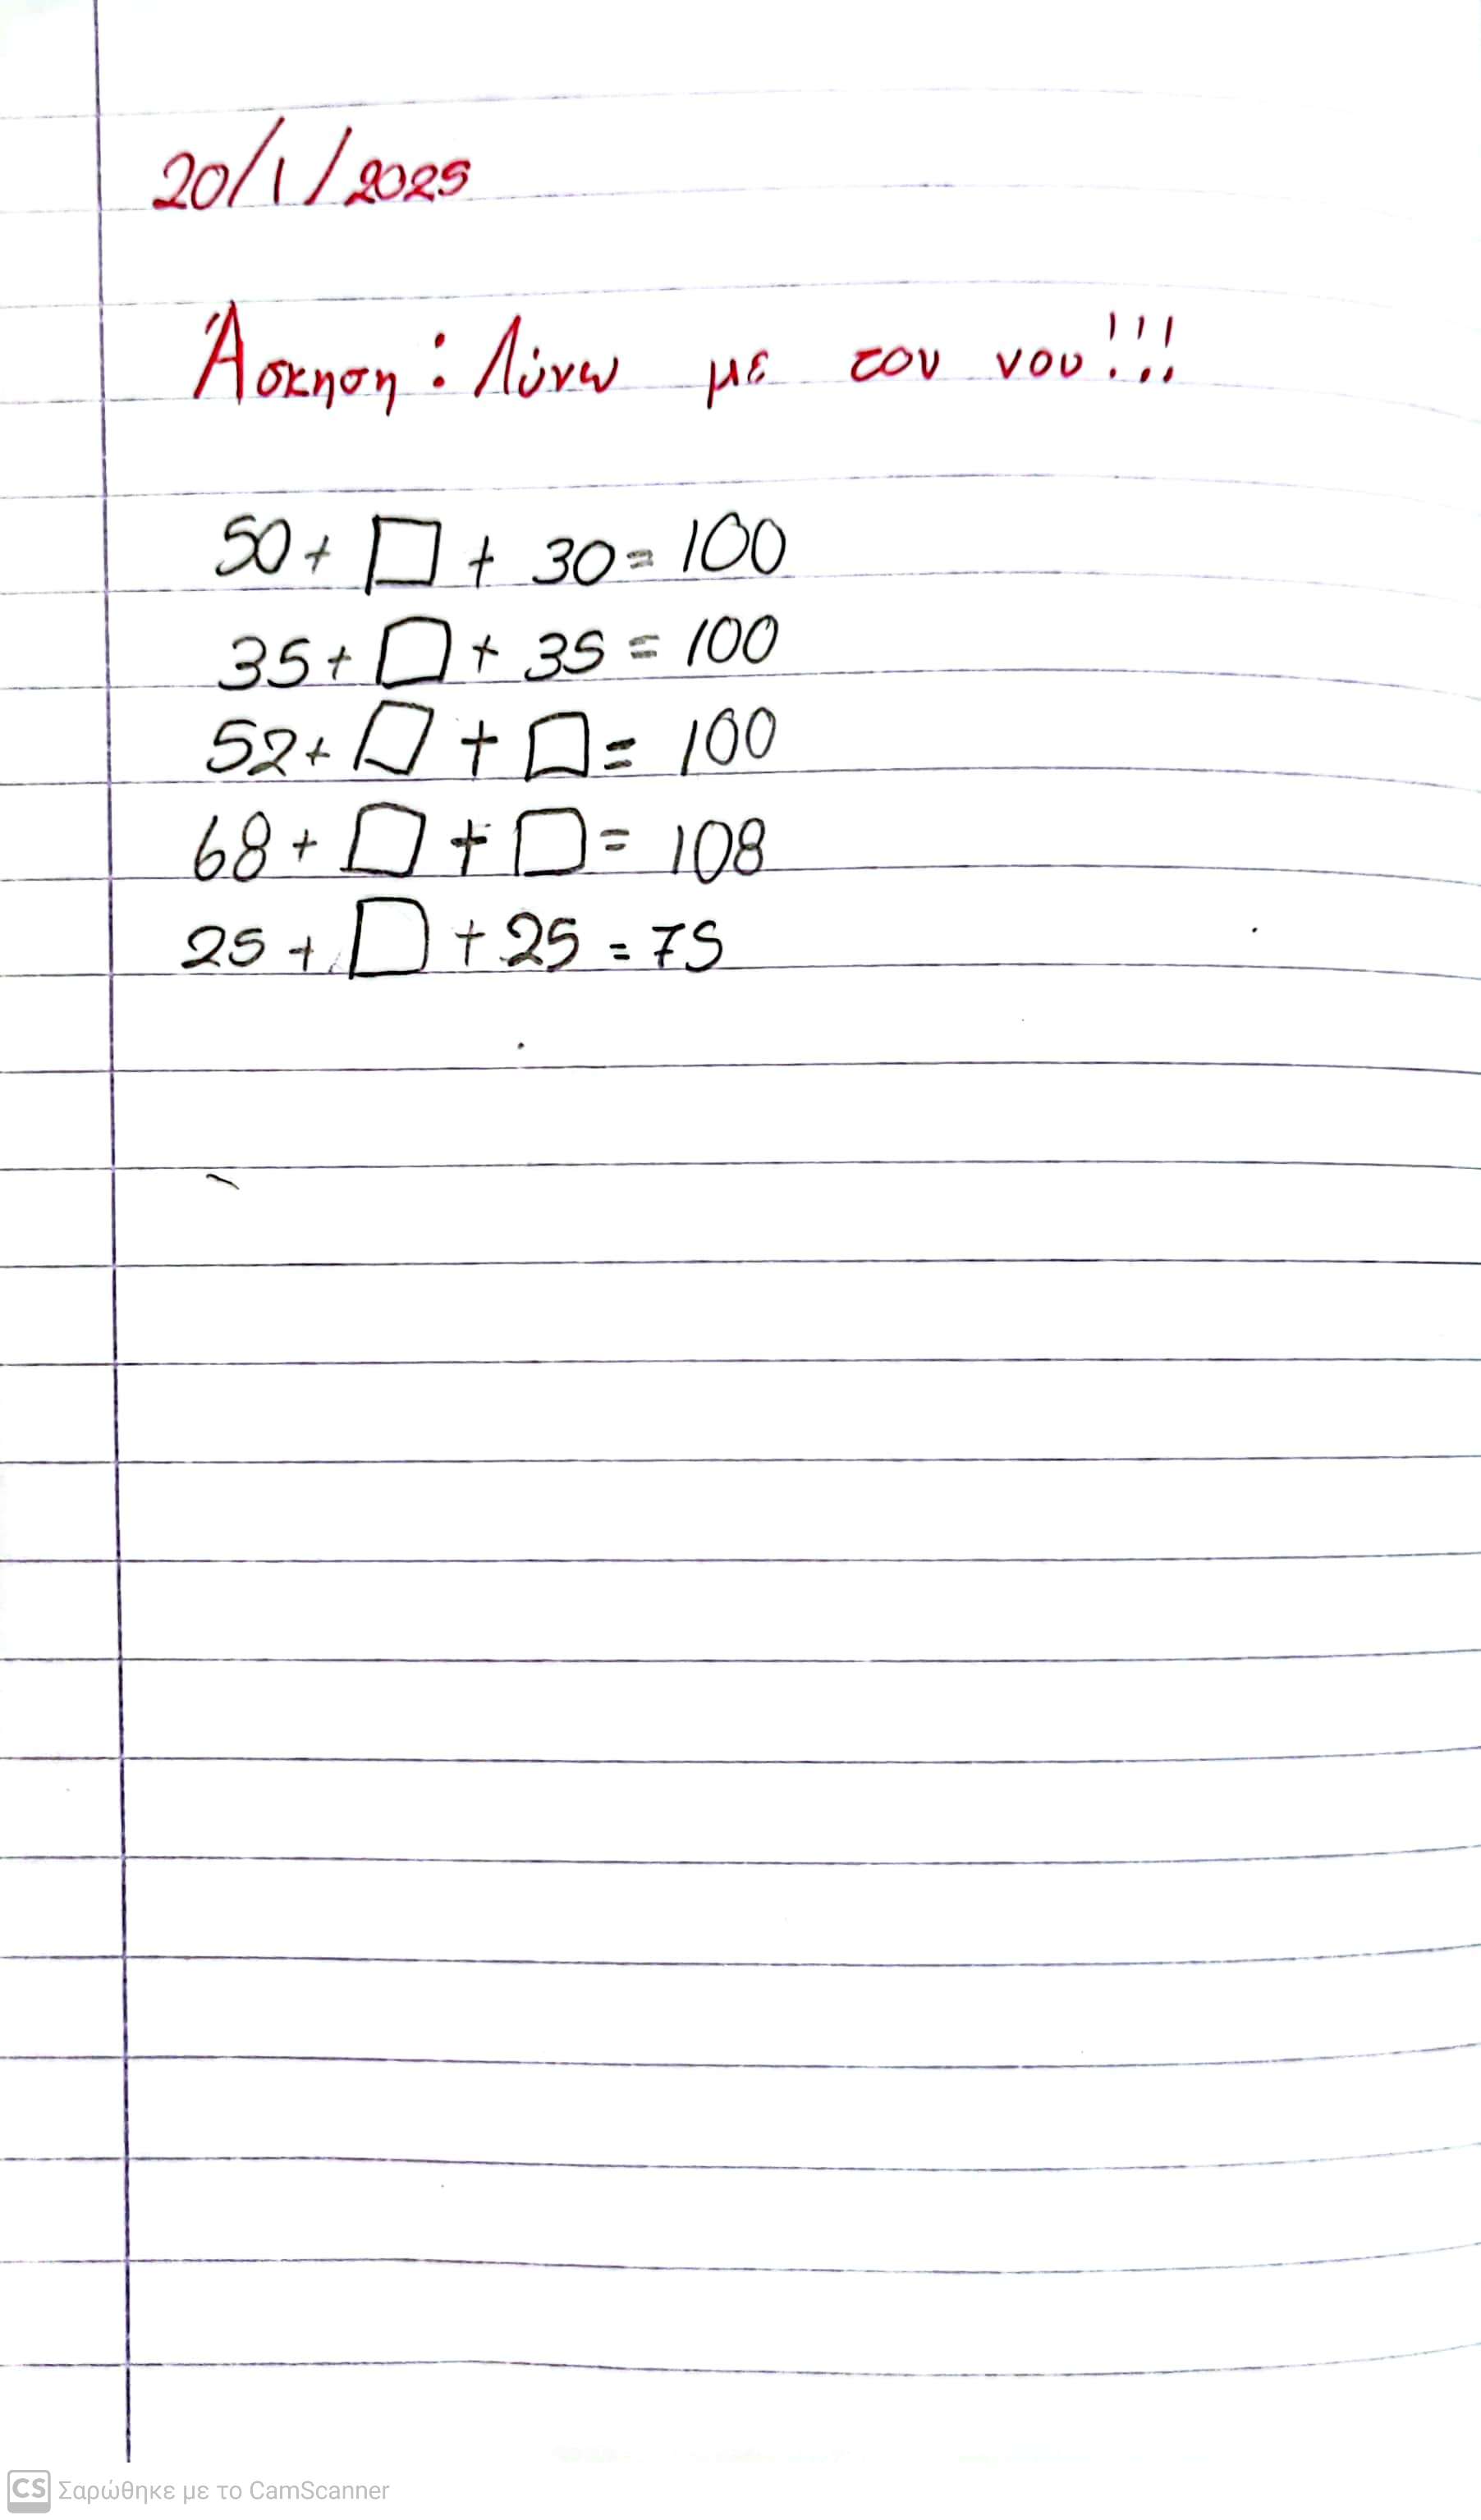 20/1/2025
Άσκηση: Λύνω με του νου!!!
50+ □ + 30 = 100
35+ □ + 35 = 100
52+ □ + □ = 100
68+ □ + □ = 108
25 + □ + 25 = 75
CS Σαρώθηκε με το CamScanner